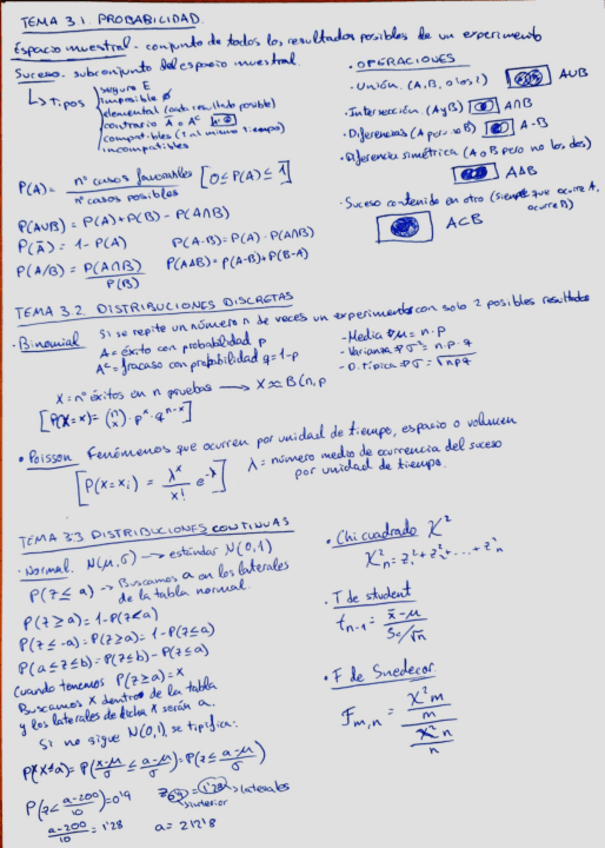 TEMA 3.1. PROBABILIDAD.
Espacio muestral. conjunto de todos los resultados posibles de un experimento
Suceso. subconjunto del espacio muestral.
↳ Tipos
seguro E
imposible ∅
elemental (cada resultado posible)
contrario Ā o Aᶜ
compatibles (1 al mismo tiempo)
incompatibles
P(A) = nº casos favorables / nº casos posibles [0 ≤ P(A) ≤ 1]
P(A∪B) = P(A)+P(B) - P(A∩B)
P(Ā) = 1 - P(A)
P(A-B) = P(A) - P(A∩B)
P(A/B) = P(A∩B) / P(B)
P(AΔB) = P(A-B)+P(B-A)
· OPERACIONES
- Unión. (A, B, o los 2) A∪B
- Intersección. (A y B) A∩B
- Diferencias (A pero no B) A-B
- Diferencia simétrica (A o B pero no los dos)
AΔB
- Suceso contenido en otro (siempre que ocurre A, ocurre B)
A⊂B
TEMA 3.2. DISTRIBUCIONES DISCRETAS
· Binomial Si se repite un número n de veces un experimento con solo 2 posibles resultados
A = éxito con probabilidad p
Aᶜ = fracaso con probabilidad q = 1-p
- Media → μ = n·p
- Varianza → σ² = n·p·q
- D. típica → σ = √npq
X = nº éxitos en n pruebas → X ≈ B(n, p
[P(X=x) = (n x) · pˣ · qⁿ⁻ˣ]
· Poisson Fenómenos que ocurren por unidad de tiempo, espacio o volumen
[P(X=xi) = λˣ / x! e^-λ]
λ = número medio de ocurrencia del suceso
por unidad de tiempo.
TEMA 3.3 DISTRIBUCIONES CONTINUAS
· Normal. N(μ, σ) → estándar N(0,1)
P(Z ≤ a) → Buscamos a en los laterales
de la tabla normal.
P(Z ≥ a) = 1 - P(Z < a)
P(Z ≤ -a) = P(Z ≥ a) = 1 - P(Z ≤ a)
P(a ≤ Z ≤ b) = P(Z ≤ b) - P(Z ≤ a)
Cuando tenemos P(Z ≥ a) = x
Buscamos x dentro de la tabla
y los laterales de dicha x serán a.
Si no sigue N(0,1), se tipifica:
P(X ≤ a) = P(x-μ / σ ≤ a-μ / σ) = P(Z ≤ a-μ / σ)
P(Z < a-200 / 10) = 0'9
Z0'9 = 1'28 → laterales
↘ interior
a-200 / 10 = 1'28
a = 212'8
· Chi cuadrado χ²
χ²n = Z²1 + Z²2 + ... + Z²n
· T de student
tn-1 = x̄ - μ / Sc/√n
· F de Snedecor.
Fm,n = χ²m / m / χ²n / n